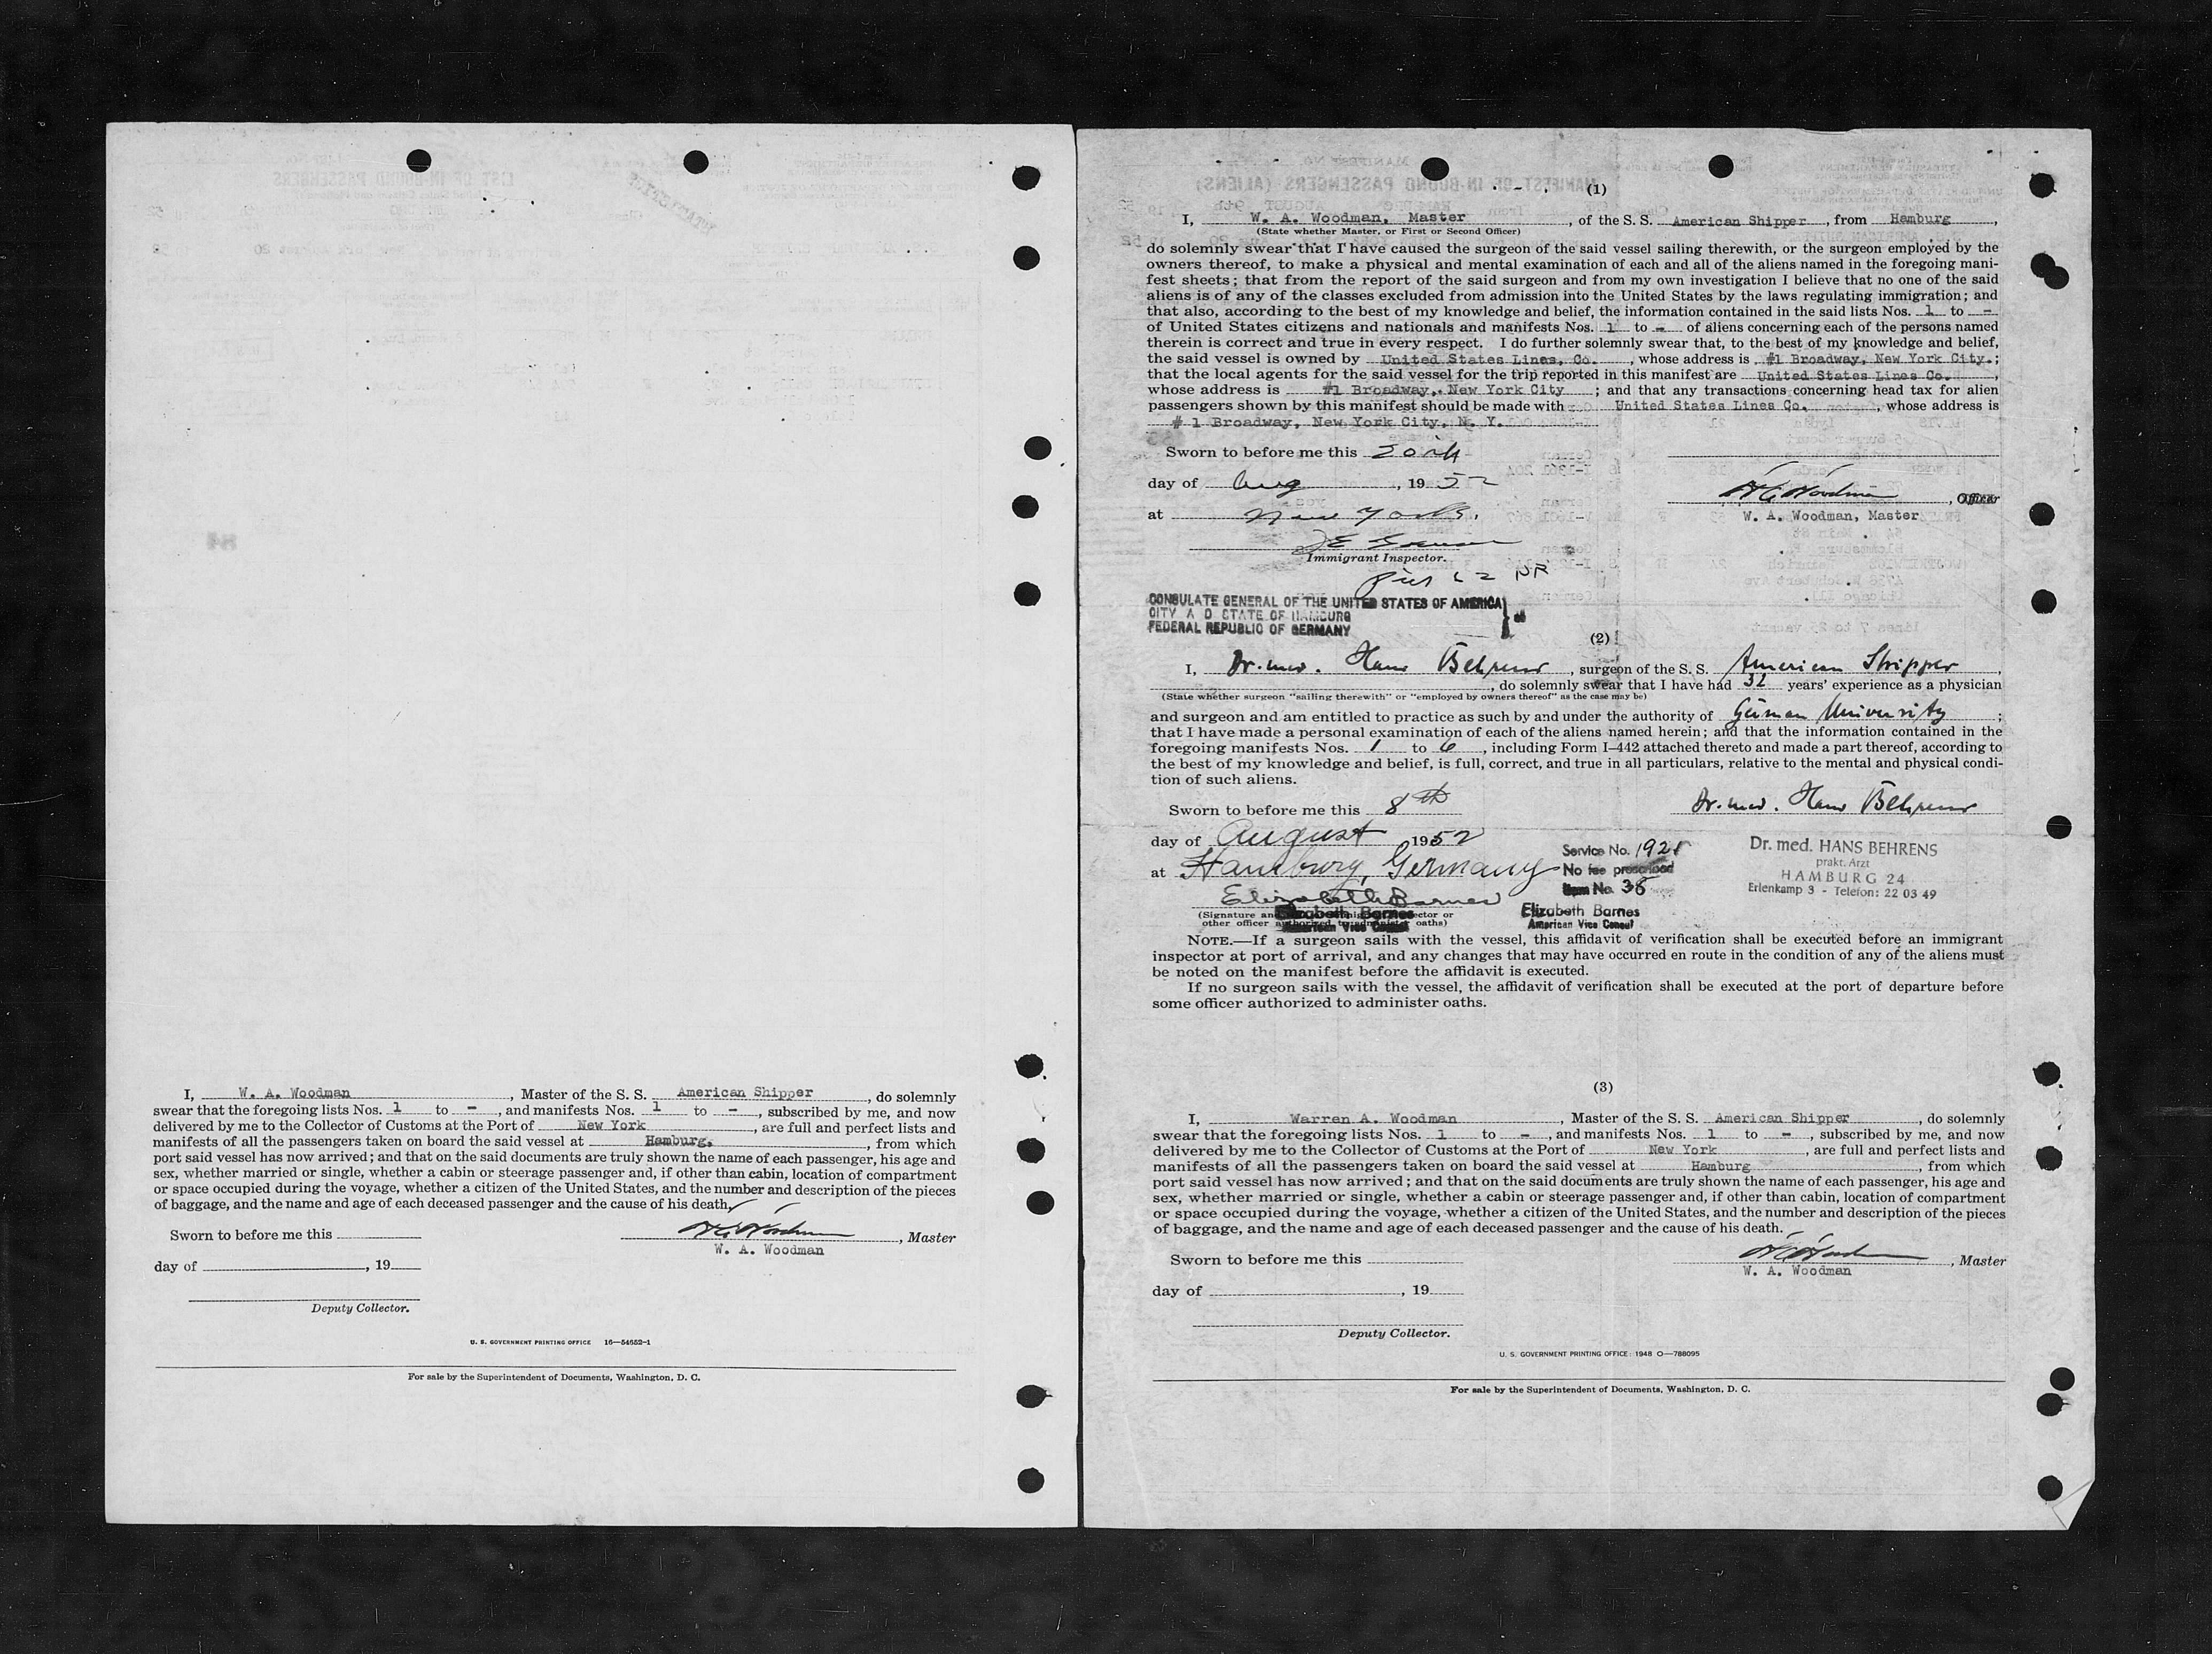 I, W. A. Woodman, Master of the S. S. American Shipper, do solemnly
swear that the foregoing lists Nos. 1 to -, and manifests Nos. 1 to -, subscribed by me, and now
delivered by me to the Collector of Customs at the Port of New York, are full and perfect lists and
manifests of all the passengers taken on board the said vessel at Hamburg., from which
port said vessel has now arrived; and that on the said documents are truly shown the name of each passenger, his age and
sex, whether married or single, whether a cabin or steerage passenger and, if other than cabin, location of compartment
or space occupied during the voyage, whether a citizen of the United States, and the number and description of the pieces
of baggage, and the name and age of each deceased passenger and the cause of his death.
Sworn to before me this
, Master
W. A. Woodman
day of , 19
Deputy Collector.
U. S. GOVERNMENT PRINTING OFFICE 16—54652-1
For sale by the Superintendent of Documents, Washington, D. C.
(1)
I, W. A. Woodman, Master, of the S. S. American Shipper, from Hamburg,
(State whether Master, or First or Second Officer)
do solemnly swear that I have caused the surgeon of the said vessel sailing therewith, or the surgeon employed by the
owners thereof, to make a physical and mental examination of each and all of the aliens named in the foregoing mani-
fest sheets; that from the report of the said surgeon and from my own investigation I believe that no one of the said
aliens is of any of the classes excluded from admission into the United States by the laws regulating immigration; and
that also, according to the best of my knowledge and belief, the information contained in the said lists Nos. 1 to -
of United States citizens and nationals and manifests Nos. 1 to - of aliens concerning each of the persons named
therein is correct and true in every respect. I do further solemnly swear that, to the best of my knowledge and belief,
the said vessel is owned by United States Lines, Co., whose address is #1 Broadway, New York City.;
that the local agents for the said vessel for the trip reported in this manifest are United States Lines Co.,
whose address is #1 Broadway, New York City; and that any transactions concerning head tax for alien
passengers shown by this manifest should be made with United States Lines Co., whose address is
# 1 Broadway, New York City, N. Y.
Sworn to before me this 20th
day of Aug, 1952
, Officer
at New York.
W. A. Woodman, Master
Immigrant Inspector.
Pier 62 NR
CONSULATE GENERAL OF THE UNITED STATES OF AMERICA
CITY A D STATE OF HAMBURG
FEDERAL REPUBLIC OF GERMANY
(2)
I, Dr. med. Hans Behrens, surgeon of the S. S. American Shipper,
, do solemnly swear that I have had 32 years' experience as a physician
(State whether surgeon "sailing therewith" or "employed by owners thereof" as the case may be)
and surgeon and am entitled to practice as such by and under the authority of German University;
that I have made a personal examination of each of the aliens named herein; and that the information contained in the
foregoing manifests Nos. 1 to 6, including Form I-442 attached thereto and made a part thereof, according to
the best of my knowledge and belief, is full, correct, and true in all particulars, relative to the mental and physical condi-
tion of such aliens.
Sworn to before me this 8th
Dr. med. Hans Behrens
day of August 1952
at Hamburg, Germany
Service No. 1921
No fee prescribed
Item No. 38
Dr. med. HANS BEHRENS
prakt. Arzt
HAMBURG 24
Erlenkamp 3 - Telefon: 22 03 49
Elizabeth Barnes
Elizabeth Barnes
American Vice Consul
Elizabeth Barnes
American Vice Consul
NOTE.—If a surgeon sails with the vessel, this affidavit of verification shall be executed before an immigrant
inspector at port of arrival, and any changes that may have occurred en route in the condition of any of the aliens must
be noted on the manifest before the affidavit is executed.
If no surgeon sails with the vessel, the affidavit of verification shall be executed at the port of departure before
some officer authorized to administer oaths.
(3)
I, Warren A. Woodman, Master of the S. S. American Shipper, do solemnly
swear that the foregoing lists Nos. 1 to -, and manifests Nos. 1 to -, subscribed by me, and now
delivered by me to the Collector of Customs at the Port of New York, are full and perfect lists and
manifests of all the passengers taken on board the said vessel at Hamburg, from which
port said vessel has now arrived; and that on the said documents are truly shown the name of each passenger, his age and
sex, whether married or single, whether a cabin or steerage passenger and, if other than cabin, location of compartment
or space occupied during the voyage, whether a citizen of the United States, and the number and description of the pieces
of baggage, and the name and age of each deceased passenger and the cause of his death.
Sworn to before me this
, Master
W. A. Woodman
day of , 19
Deputy Collector.
U. S. GOVERNMENT PRINTING OFFICE: 1948 O—788095
For sale by the Superintendent of Documents, Washington, D. C.